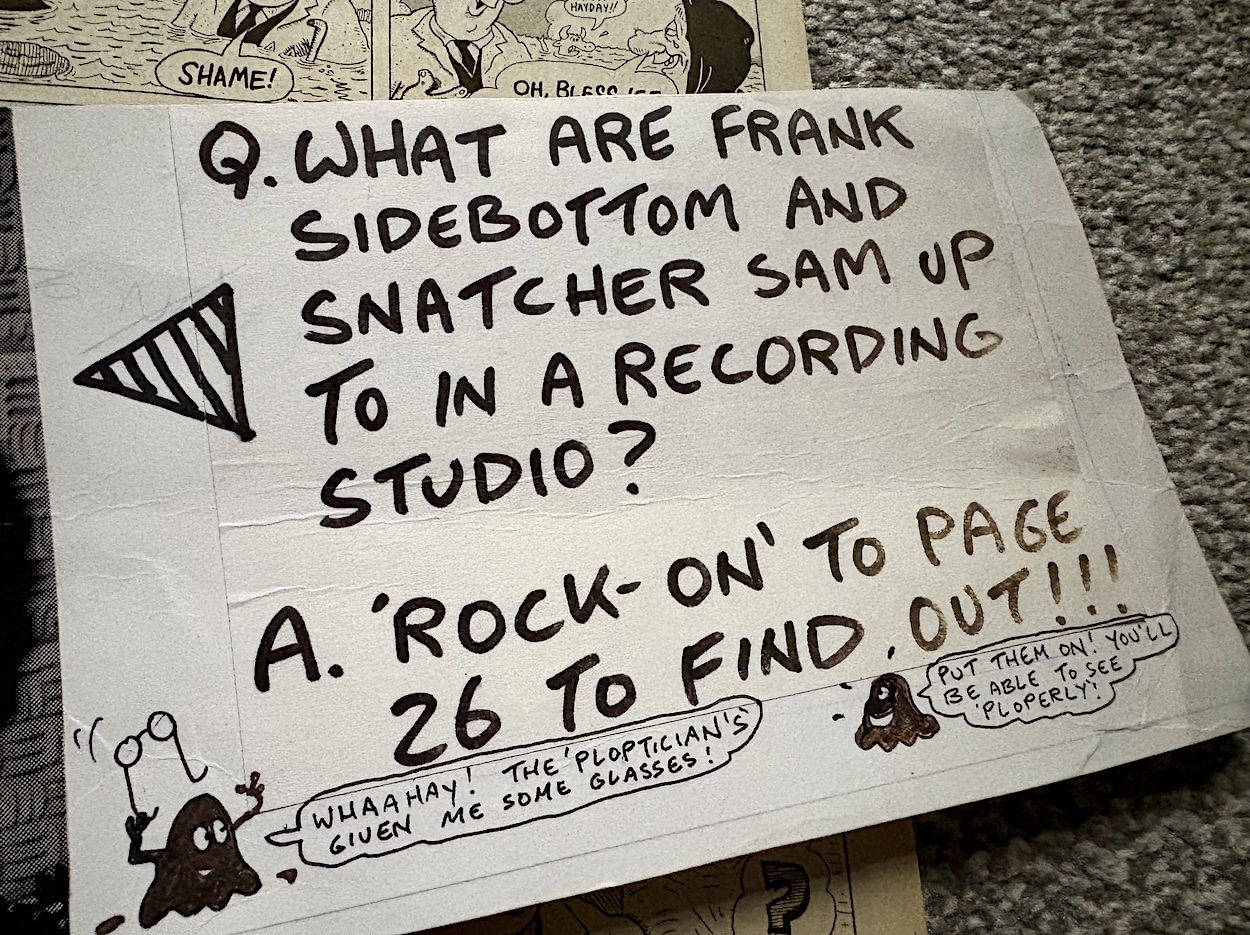 HAYDAY!!
SHAME!
OH, BLESS
Q. WHAT ARE FRANK
SIDEBOTTOM AND
SNATCHER SAM UP
TO IN A RECORDING
STUDIO?
A. 'ROCK-ON' TO PAGE
26 TO FIND OUT!!!
PUT THEM ON! YOU'LL
BE ABLE TO SEE
'PLOPERLY'!
WHAAHAY! THE 'PLOPTICIAN'S
GIVEN ME SOME GLASSES!
?